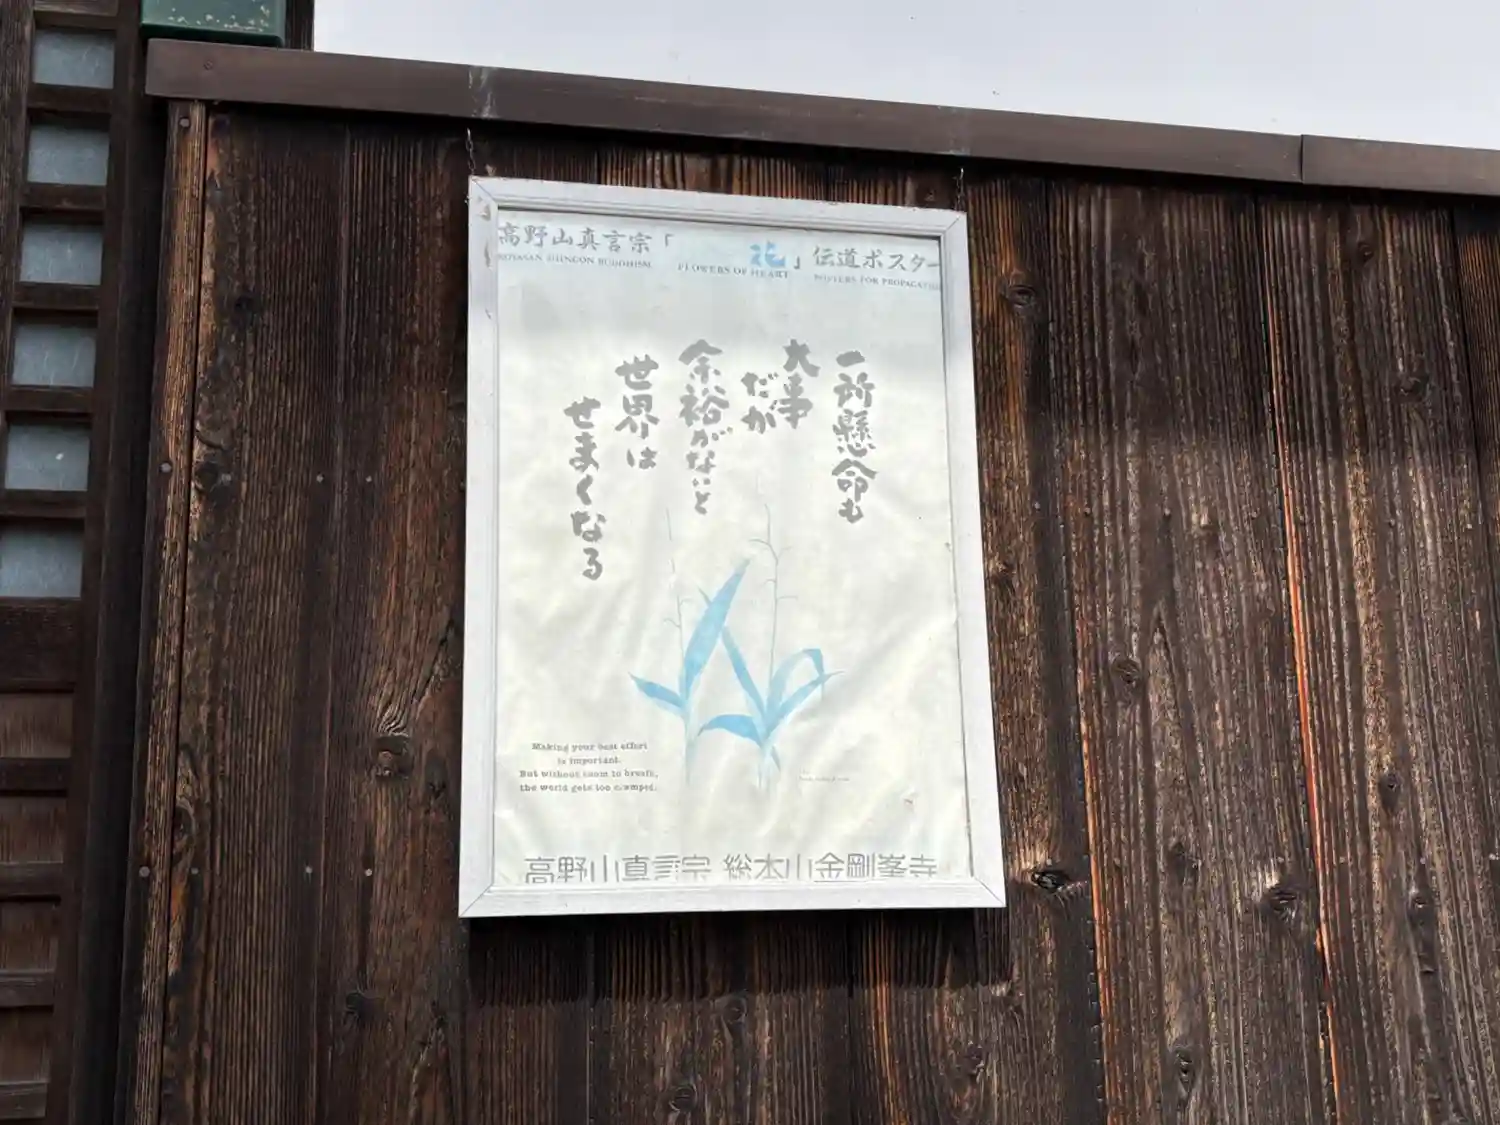 高野山真言宗「 花」伝道ポスター
KOYASAN SHINGON BUDDHISM FLOWERS OF HEART POSTERS FOR PROPAGATION
一所懸命も
大事
だが
余裕がないと
世界は
せまくなる
Making your best effort
is important.
But without room to breath,
the world gets too cramped.
高野山真言宗 総本山金剛峯寺